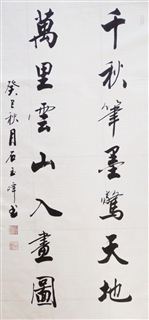 千秋筆墨驚天地
萬里雲山入畫圖
癸巳秋月石玉峰书